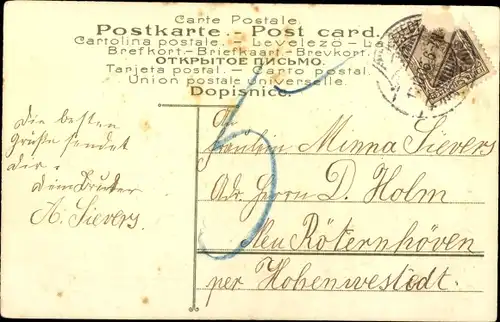 Carte Postale.
Postkarte. - Post card.
Cartolina postale. - Levelező - La
Brefkort - Briefkaart - Brevkort.
ОТКРЫТОЕ ПИСЬМО.
Tarjeta postal. - Carto postal.
Union postale universelle.
Dopisnice.
Die besten
Grüße sendet
Dir
Dein Bruder
A. Sievers.
5
An
Fräulein Minna Sievers
Adr. Herrn D. Holm
Neu Röternhöven
per Hohenwestedt.